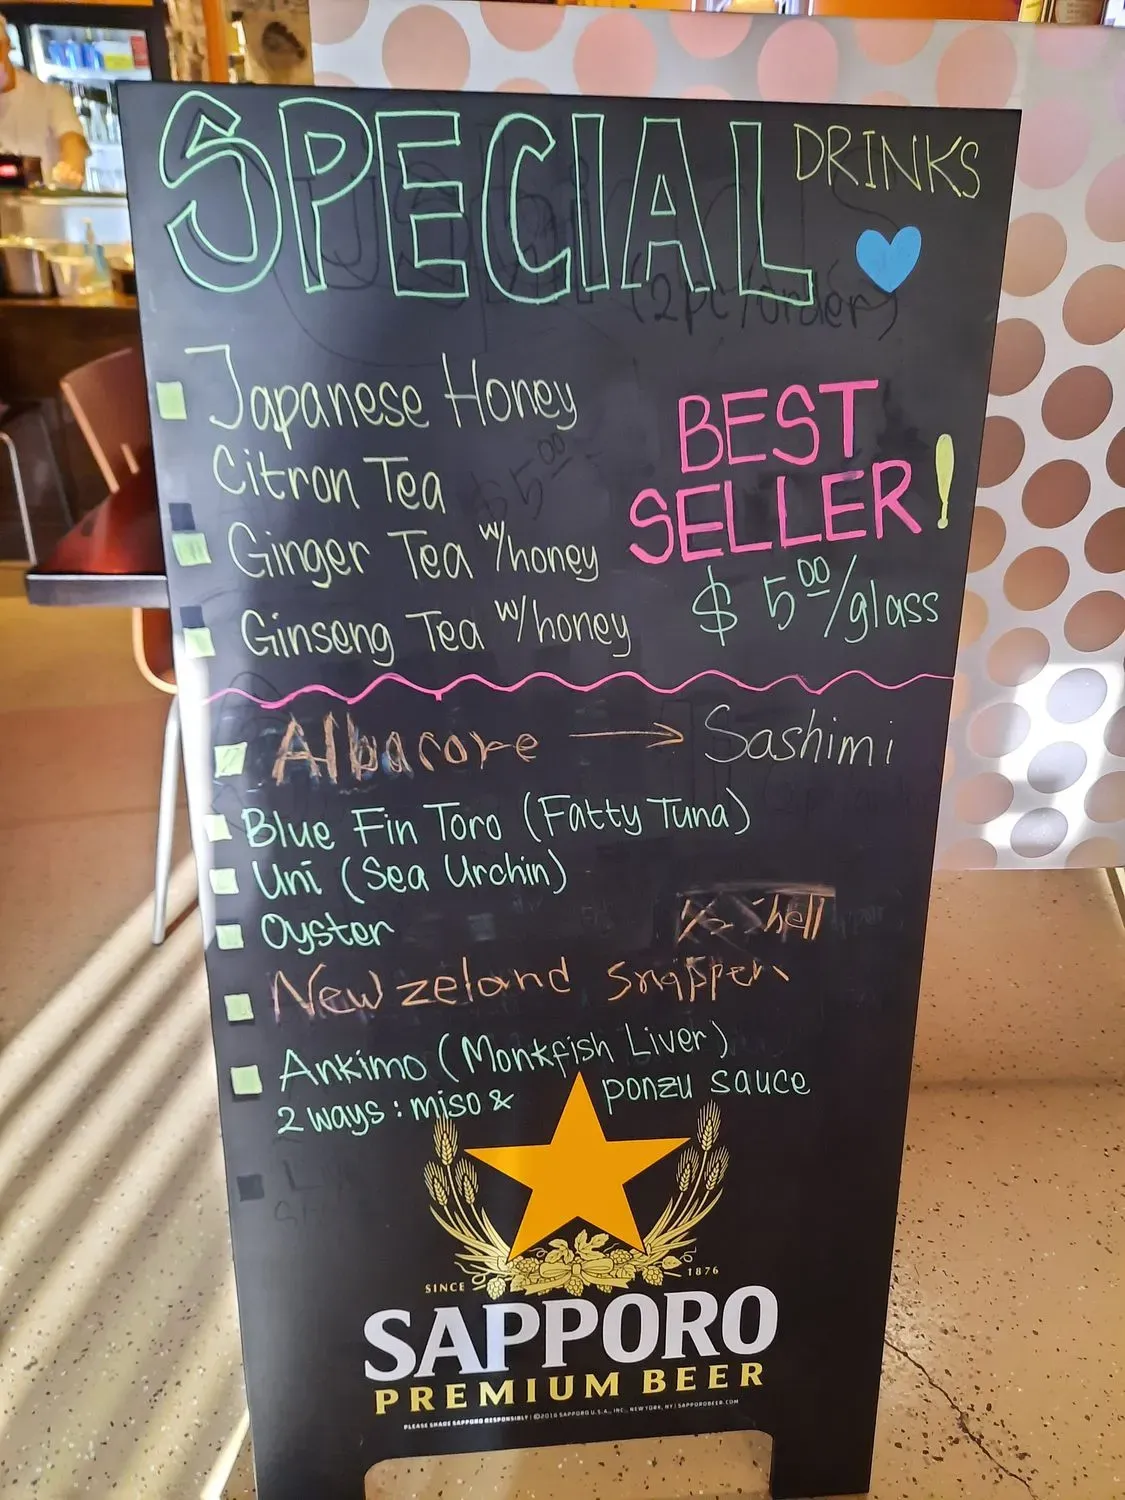 SPECIAL DRINKS
(2pc/order)
Japanese Honey
Citron Tea
$5.00
BEST
SELLER!
Ginger Tea w/honey
Ginseng Tea w/honey
$ 5.00/glass
Albacore → Sashimi
Blue Fin Toro (Fatty Tuna)
Uni (Sea Urchin)
Oyster
New zeland snapper
Ankimo (Monkfish Liver)
2 ways: miso & ponzu sauce
SINCE 1876
SAPPORO
PREMIUM BEER
PLEASE SHARE SAPPORO RESPONSIBLY | ©2016 SAPPORO U.S.A., INC., NEW YORK, NY | SAPPOROBEER.COM